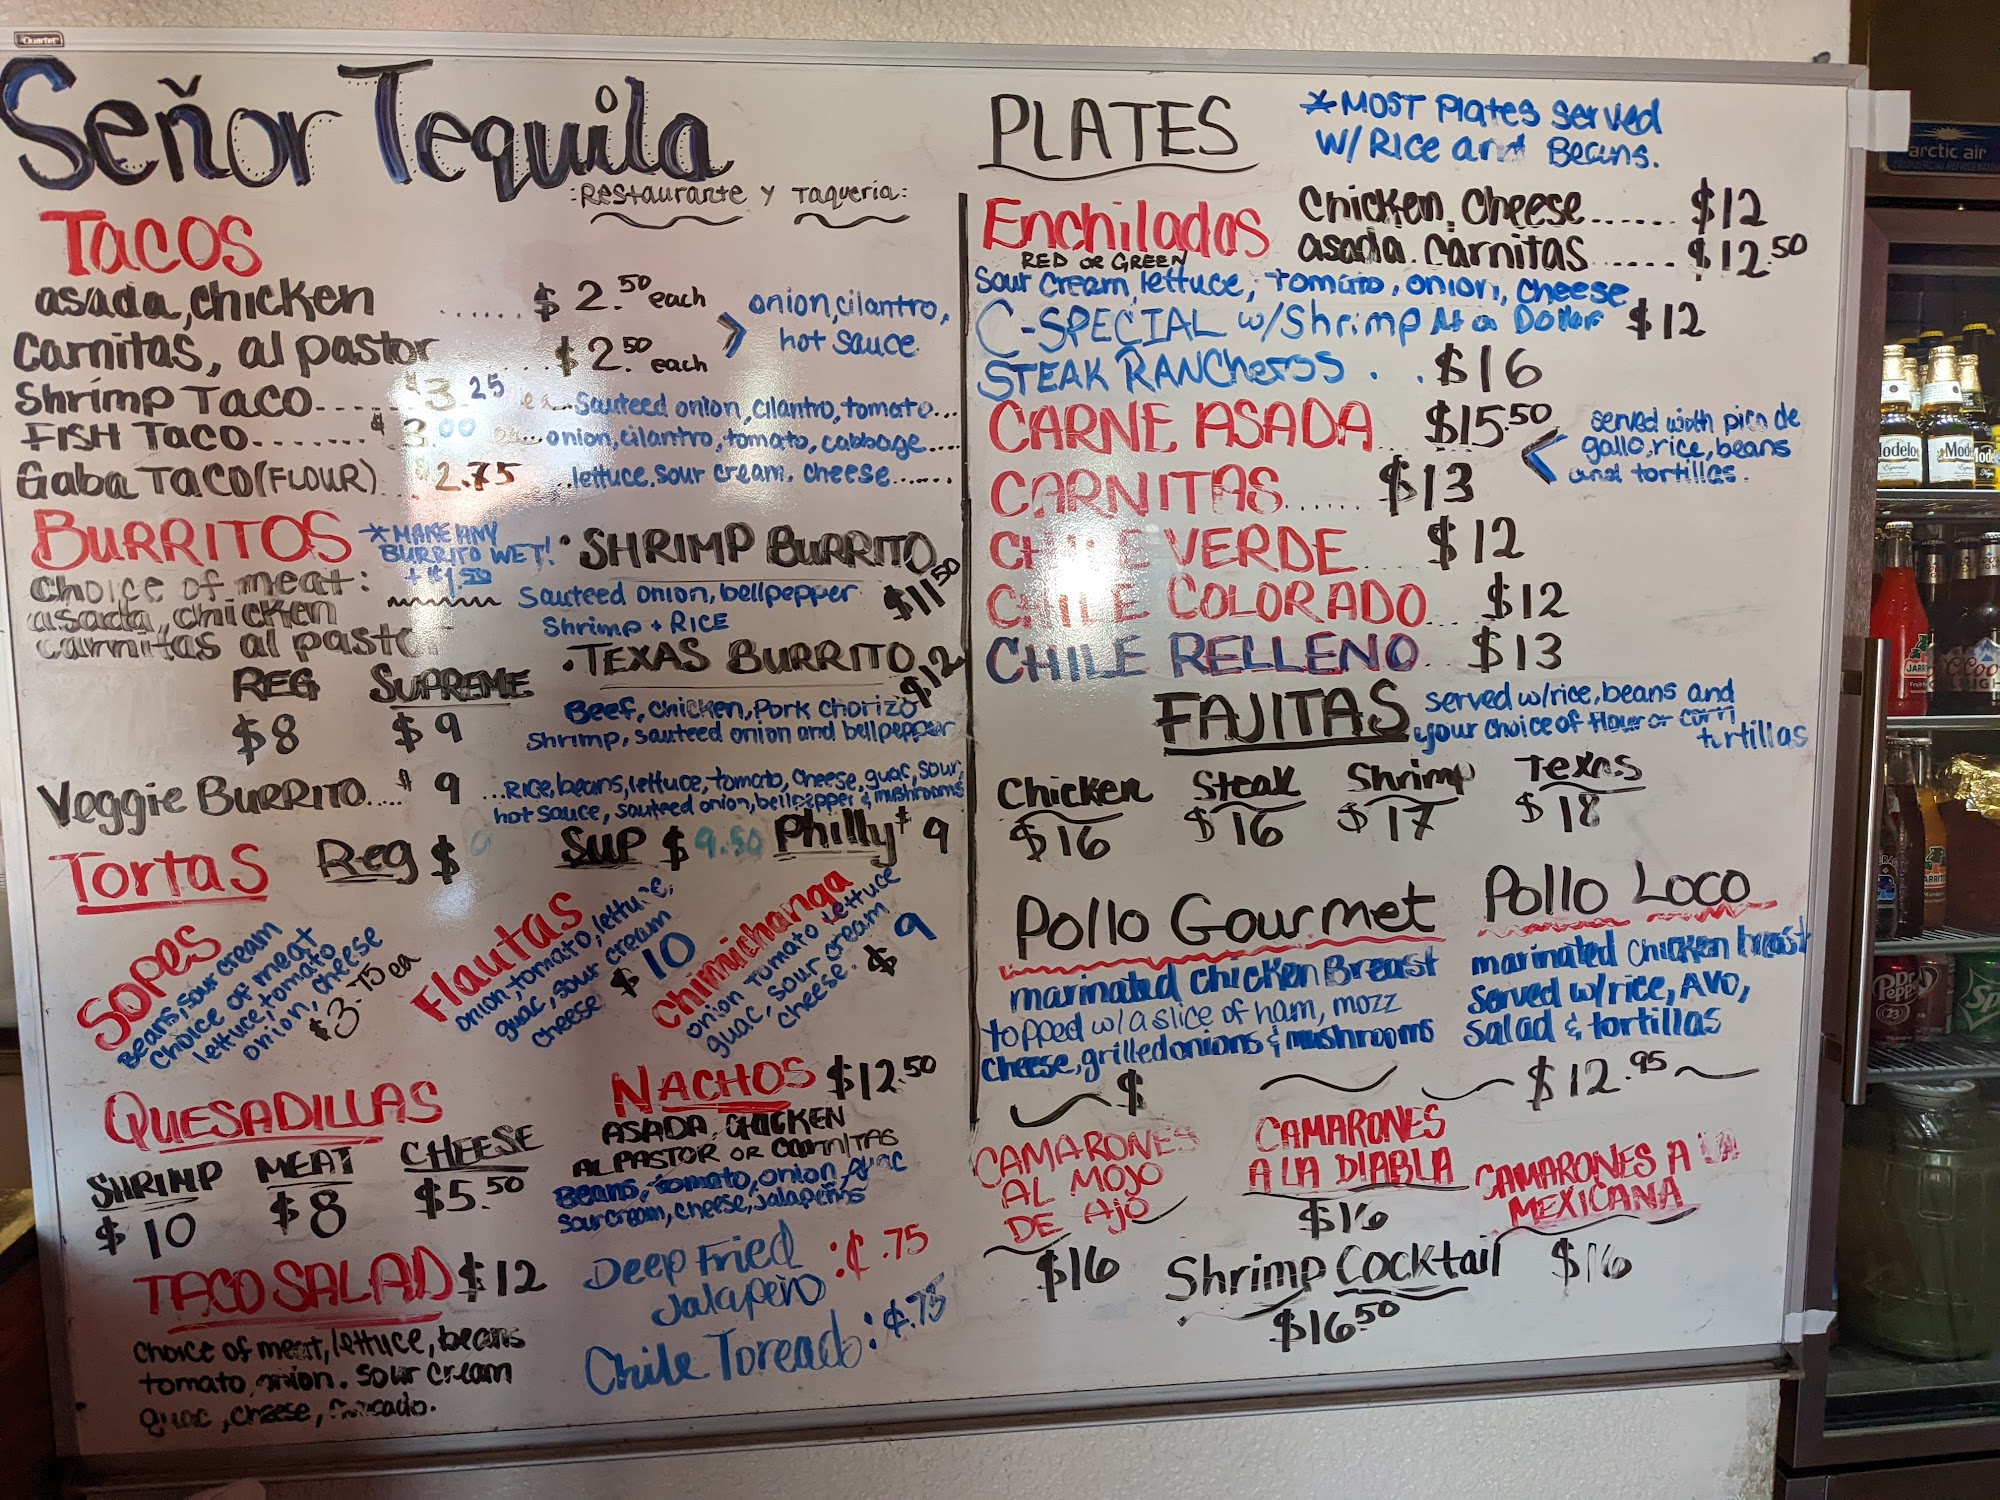 Quartet
Señor Tequila
:Restaurante y Taqueria:
TACOS
asada, chicken ...... $2.50 each
Carnitas, al pastor .... $2.50 each
> onion, cilantro,
hot sauce
Shrimp TACO.... $3.25 ea...sauteed onion, cilantro, tomato...
FISH TACO....... $3.00 ...onion, cilantro, tomato, cabbage....
Gaba TACO(FLOUR)... $2.75 ...lettuce, sour cream, cheese.......
BURRITOS
*MAKE ANY
BURRITO WET!
+ $1.50
choice of meat:
asada, chicken
carnitas al pastor
REG SUPREME
$8 $9
• SHRIMP BURRITO
$11.50
Sauteed onion, bellpepper
Shrimp + RICE
• TEXAS BURRITO
$12
Beef, chicken, Pork chorizo
Shrimp, sauteed onion and bellpepper
Veggie BURRITO.... $9 ...RICE, beans, lettuce, tomato, cheese, guac, sour,
hot sauce, sauteed onion, bellpepper & mushrooms
Tortas Reg $ Sup $9.50 Philly $9
Sopes
Beans, sour cream
choice of meat
lettuce, tomato
onion, cheese
$3.75 ea
Flautas
onion, tomato, lettuce,
guac, sour cream
cheese $10
Chimichanga
onion Tomato lettuce
guac, sour cream
cheese. $9
QUESADILLAS
SHRIMP MEAT CHEESE
$10 $8 $5.50
NACHOS $12.50
ASADA, CHICKEN
AL PASTOR OR CARNITAS
Beans, tomato, onion, guac
sour cream, cheese, jalapeños
TACO SALAD $12
choice of meat, lettuce, beans
tomato, onion. sour cream
guac, cheese, avocado.
Deep Fried
Jalapeño :¢.75
Chile Toreado:¢.75
PLATES
*MOST Plates served
W/ RICE and Beans.
Enchiladas
RED OR GREEN
Chicken, Cheese...... $12
asada. Carnitas ...... $12.50
Sour cream, lettuce, tomato, onion, cheese
C-SPECIAL w/Shrimp At a Dollar $12
STEAK RANCHEROS . . $16
CARNE ASADA $15.50
served with pico de
gallo, rice, beans
and tortillas.
CARNITAS...... $13
CHILE VERDE $12
CHILE COLORADO... $12
CHILE RELLENO.. $13
FAJITAS
served w/rice, beans and
your choice of flour or corn
tortillas
Chicken Steak Shrimp Texas
$16 $16 $17 $18
Pollo Gourmet
marinated chicken Breast
topped w/ a slice of ham, mozz
cheese, grilled onions & mushrooms
$
Pollo Loco
marinated chicken breast
served w/rice, AVO,
salad & tortillas
$12.95
CAMARONES
AL MOJO
DE AJO
$16
CAMARONES
A LA DIABLA
$16
CAMARONES A LA
MEXICANA
$16
Shrimp Cocktail
$16.50
arctic air
Modelo
Modelo
Dr Pepper
23